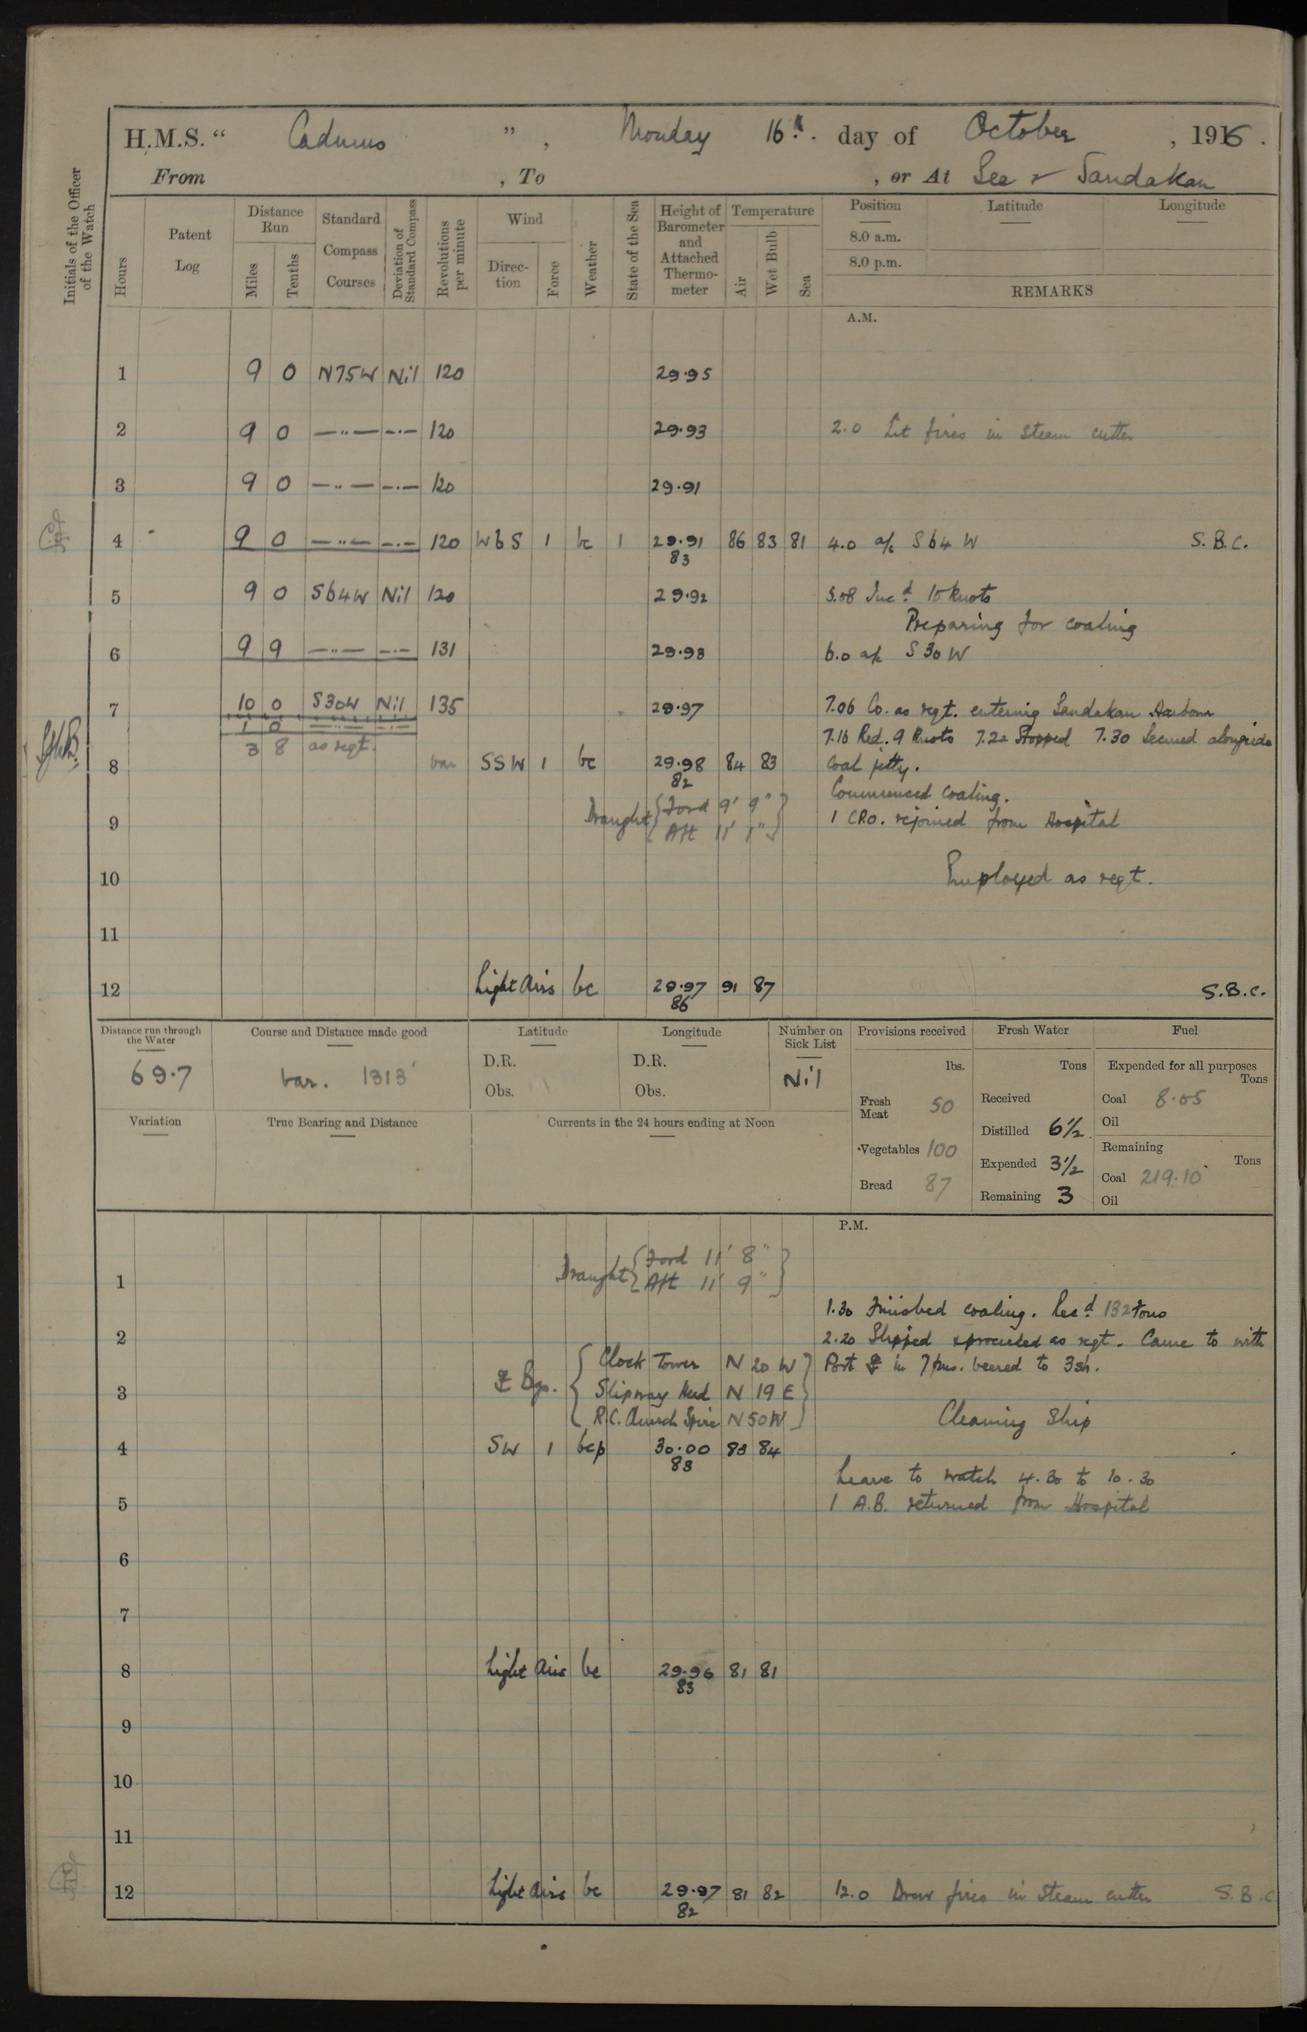 H.M.S. “ Cadmus ”, Monday 16th. day of October, 1916.
From , To , or At Sea & Sandakan
Initials of the Officer of the Watch
Hours
Patent Log
Distance Run
Miles
Tenths
Standard Compass Courses
Deviation of Standard Compass
Revolutions per minute
Wind
Direc-tion
Force
Weather
State of the Sea
Height of Barometer and Attached Thermo-meter
Temperature
Air
Wet Bulb
Sea
Position
Latitude
Longitude
8.0 a.m.
8.0 p.m.
REMARKS
A.M.
1 9 0 N75W Nil 120 29.95
2 9 0 —..— —.— 120 29.93 2.0 Lit fires in steam cutter
3 9 0 —..— —.— 120 29.91
4 9 0 —..— —.— 120 WbS 1 bc 1 29.91 86 83 81 4.0 a/c S64W S.B.C.
83
5 9 0 S64W Nil 120 29.92 5.08 Incd. 10 knots
Preparing for coaling
6 9 9 —..— —.— 131 29.93 6.0 a/c S30W
7 10 0 S30W Nil 135 29.97 7.06 Co. as reqt. entering Sandakan Harbour
1 0 —..— —..—
3 8 as reqt. 7.16 Red. 9 knots 7.22 Stopped 7.30 Secured alongside
8 var SSW 1 bc 29.98 84 83 coal jetty.
82
Commenced coaling.
Draught { Ford 9' 9" }
9 { Aft 11' 1" } 1 CRO. rejoined from Hospital
10 Employed as reqt.
11
12 Light Airs bc 29.97 91 87 S.B.C.
86
Distance run through the Water
69.7
Course and Distance made good
var. 1313'
Latitude
D.R.
Obs.
Longitude
D.R.
Obs.
Number on Sick List
Nil
Provisions received
lbs.
Fresh Meat 50
Vegetables 100
Bread 87
Fresh Water
Tons
Received
Distilled 6½
Expended 3½
Remaining 3
Fuel
Expended for all purposes
Tons
Coal 8.05
Oil
Remaining
Tons
Coal 219.10
Oil
Variation
True Bearing and Distance
Currents in the 24 hours ending at Noon
P.M.
Draught { Ford 11' 8" }
1 { Aft 11' 9" }
1.30 Finished coaling. Recd. 132 tons
2 2.20 Slipped & proceeded as reqt. Came to with
Bgs. { Clock Tower N 20 W } Port in 7 fms. veered to 3 sh.
3 { Slipway Head N 19 E }
{ R.C. Church Spire N 50 W } Cleaning Ship
4 SW 1 bcp 30.00 83 84
83
Leave to watch 4.30 to 10.30
5 1 A.B. returned from Hospital
6
7
8 Light Airs bc 29.96 81 81
83
9
10
11
12 Light Airs bc 29.97 81 82 12.0 Drew fires in steam cutter S.B.C
82